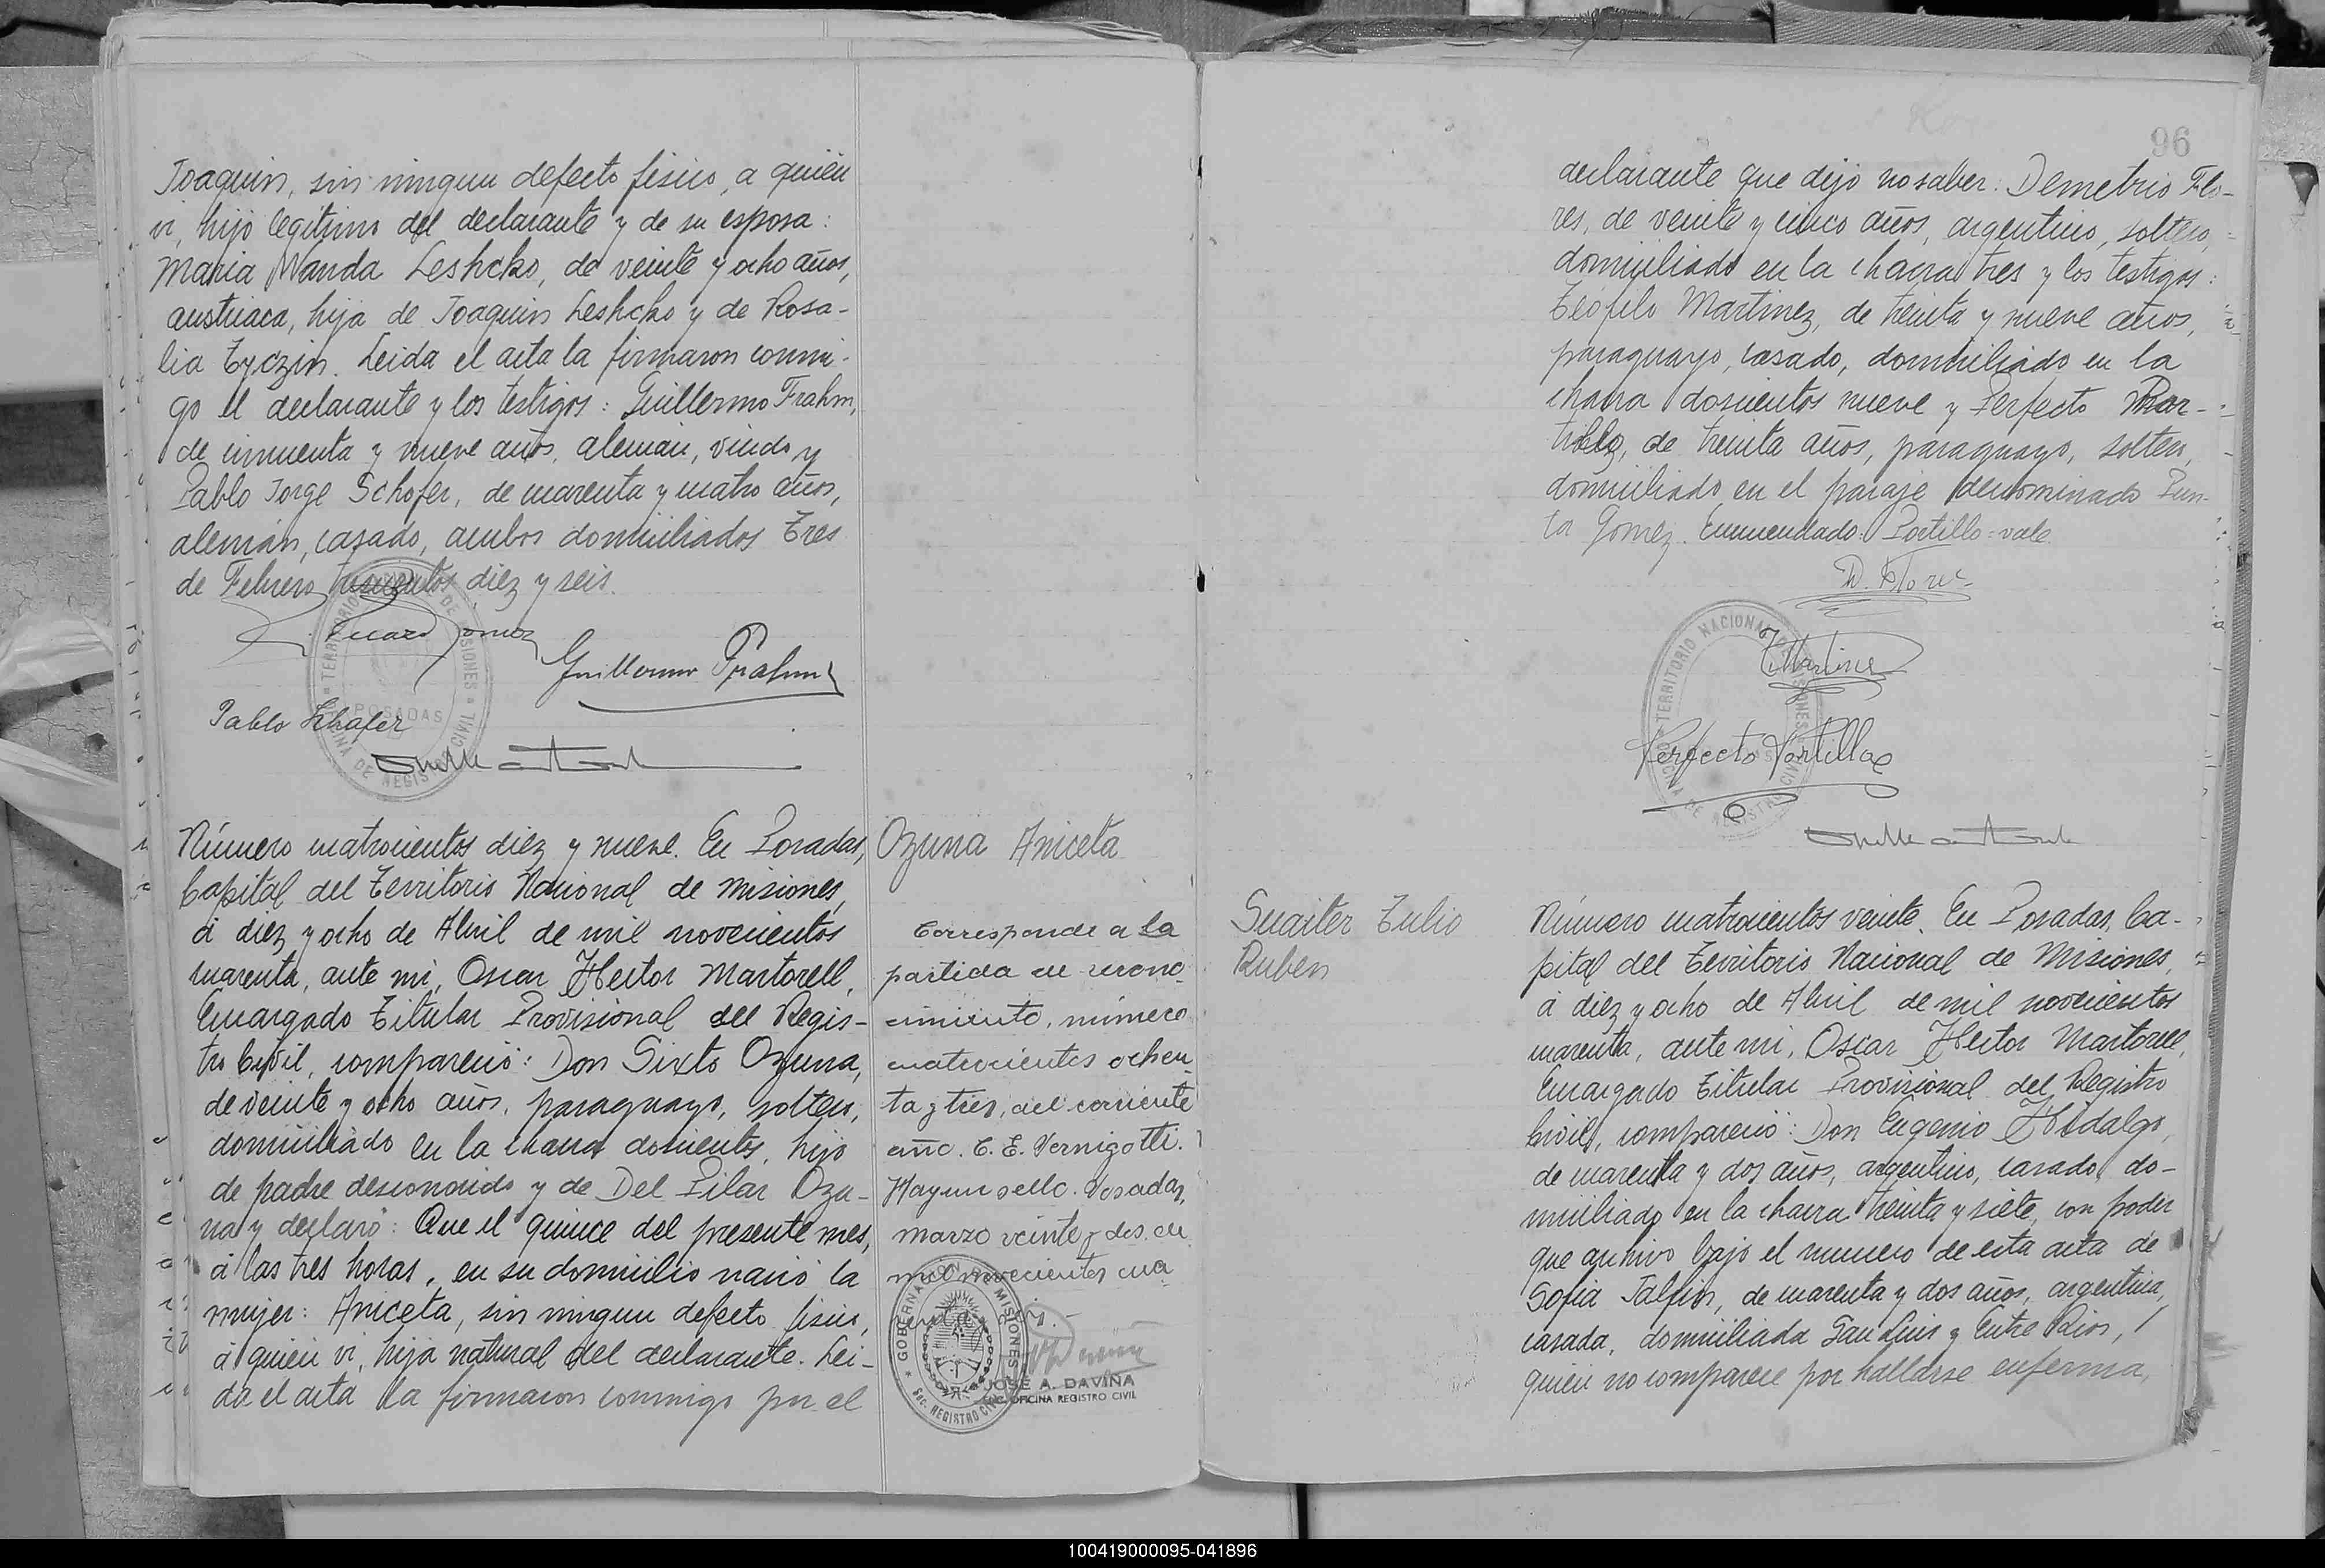 Joaquin, sin ningun defecto fisico, a quién
vi, hijo legitimo del declarante y de su esposa:
Maria Wanda Leshcko, de veinte y ocho años,
austriaca, hija de Joaquin Leshcko y de Rosa-
lia Tyczin. Leida el acta la firmaron conmi-
go el declarante y los testigos: Guillermo Frahm,
de cincuenta y nueve años, alemán, viudo y
Pablo Jorge Schofer, de cuarenta y cuatro años,
alemán, casado, ambos domiciliados Tres
de Febrero trescientos diez y seis.
Guillermo Frahm
Pablo Schafer
TERRITORIO NACIONAL DE MISIONES
POSADAS
OFICINA DE REGISTRO CIVIL
Número cuatrocientos diez y nueve. En Posadas,
Capital del Territorio Nacional de Misiones,
á diez y ocho de Abril de mil novecientos
cuarenta, ante mi, Oscar Hector Martorell,
Encargado Titular Provisional del Regis-
tro Civil, compareció: Don Sixto Ozuna,
de veinte y ocho años, paraguayo, soltero,
domiciliado en la chacra doscientos, hijo
de padre desconocido y de Del Pilar Ozu-
na y declaró: Que el quince del presente mes,
á las tres horas, en su domicilio nació la
mujer: Aniceta, sin ningun defecto fisico,
á quien vi, hija natural del declarante. Lei-
da el acta la firmaron conmigo por el
Ozuna Aniceta
Corresponde a la
partida de recono-
cimiento, número
cuatrocientos ochen-
ta y tres, del corriente
año. C. E. Vernigotti.
Hay un sello. Posadas,
marzo veinte y dos de
mil novecientos cua
GOBERNACION DE MISIONES
SEC. REGISTRO CIVIL
JOSE A. DAVIÑA
OFICINA REGISTRO CIVIL
96
declarante que dijo no saber: Demetrio Flo-
res, de veinte y cinco años, argentino, soltero,
domiciliado en la chacra tres y los testigos:
Teófilo Martinez, de treinta y nueve años,
paraguayo, casado, domiciliado en la
chacra doscientos nueve y Perfecto Por-
tillo, de treinta años, paraguayo, soltero,
domiciliado en el paraje denominado Pun-
ta Gomez. Enmendado: Portillo=vale.
D. Flores
T. Martinez
Perfecto Portillo
TERRITORIO NACIONAL DE MISIONES
OFICINA DE REGISTRO CIVIL
Suaiter Tulio
Ruben
Número cuatrocientos veinte. En Posadas, Ca-
pital del Territorio Nacional de Misiones,
á diez y ocho de Abril de mil novecientos
cuarenta, ante mi, Oscar Hector Martorell,
Encargado Titular Provisional del Registro
Civil, compareció: Don Eugenio Hidalgo,
de cuarenta y dos años, argentino, casado, do-
miciliado en la chacra treinta y siete, con poder
que archivo bajo el numero de esta acta de
Sofia Jalfin, de cuarenta y dos años, argentina,
casada, domiciliada San Luis y Entre Rios,
quien no comparece por hallarse enferma,
100419000095-041896